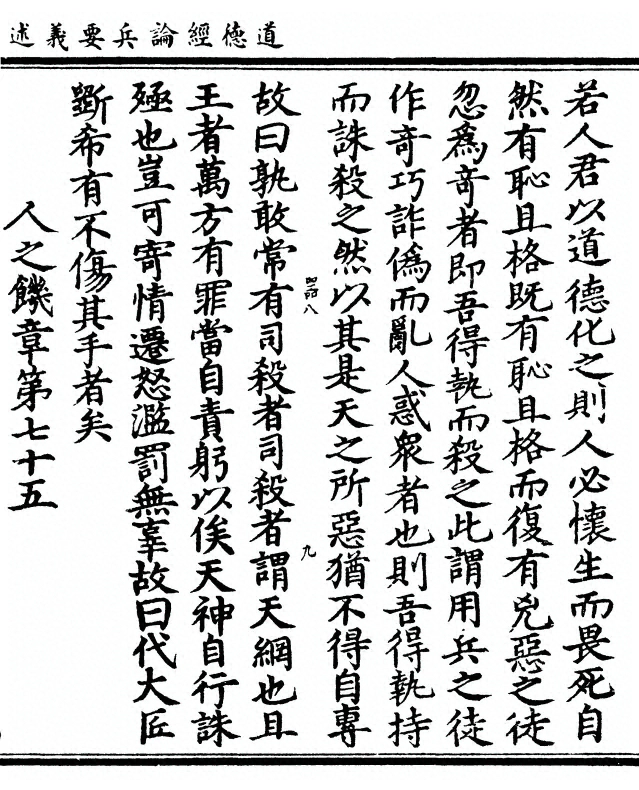 道德經論兵要義述
若人君以道德化之則人必懷生而畏死自
然有恥且格既有恥且格而復有兇惡之徒
忽爲竒者即吾得執而殺之此謂用兵之徒
作竒巧詐僞而亂人惑衆者也則吾得執持
而誅殺之然以其是天之所惡猶不得自專
故曰孰敢常有司殺者司殺者謂天網也且
王者萬方有罪當自責躬以俟天神自行誅
殛也豈可寄情遷怒濫罰無辜故曰代大匠
斲希有不傷其手者矣
人之饑章第七十五
九